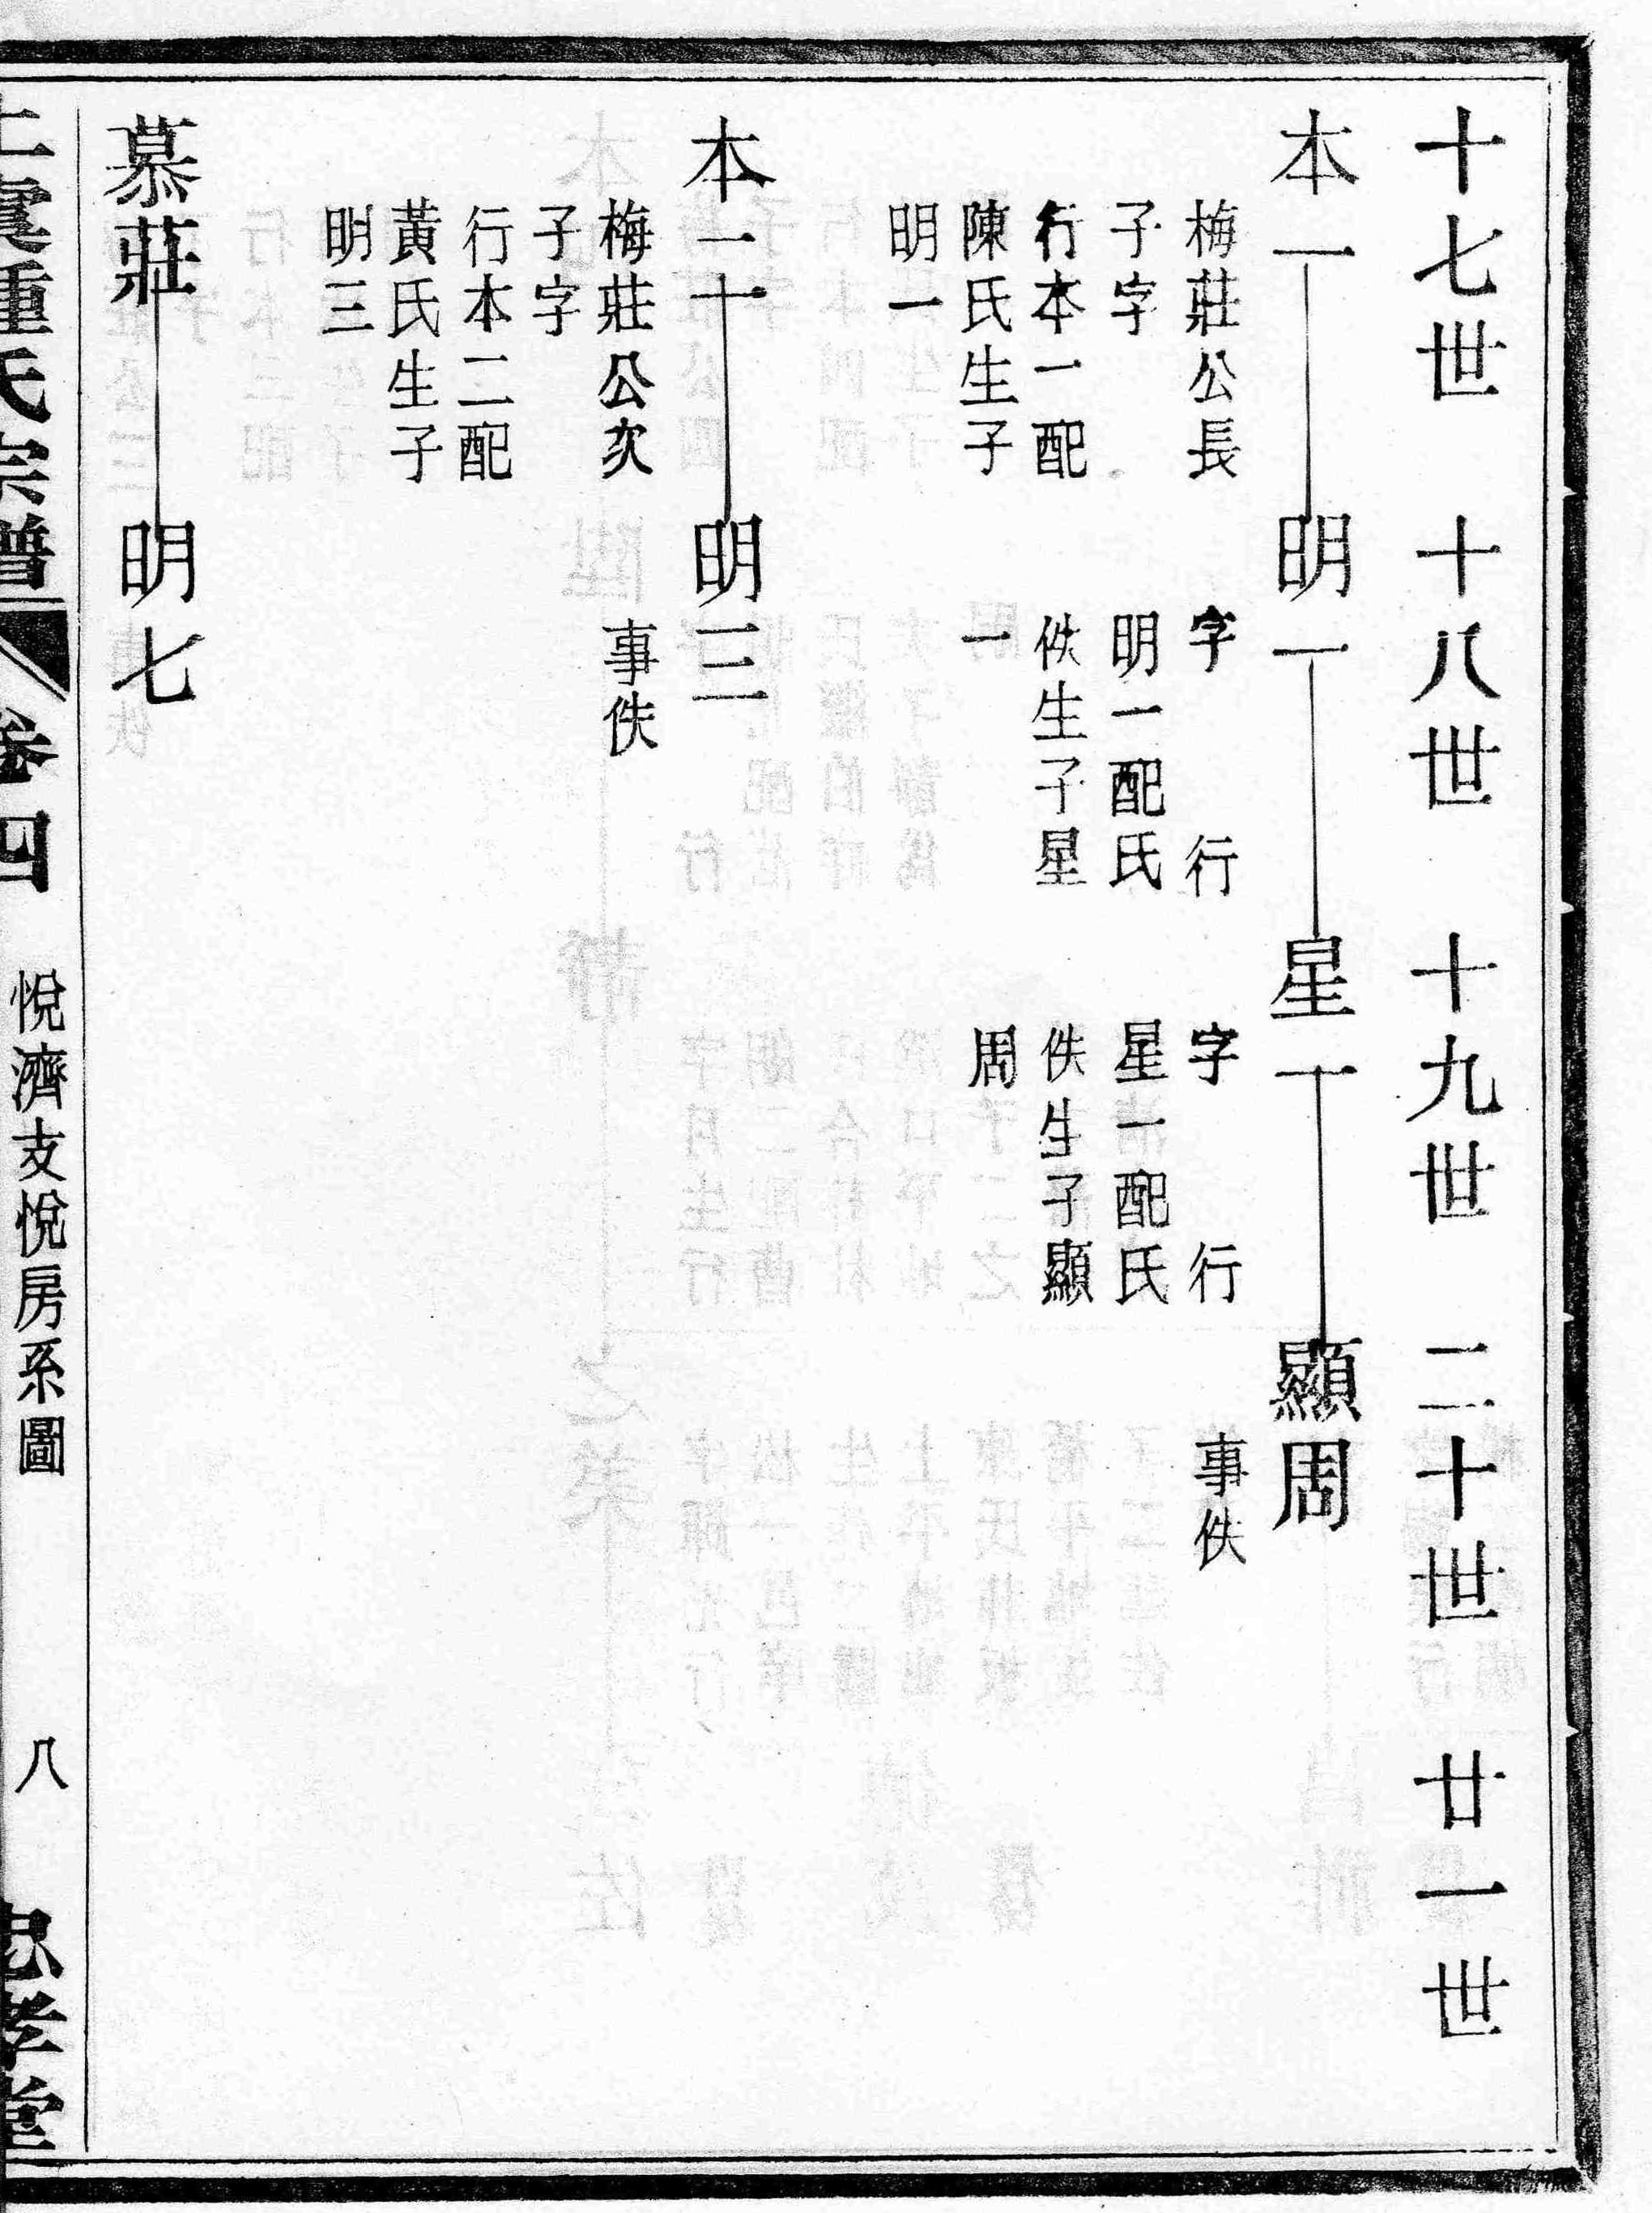 十七世　十八世　十九世　二十世　廿一世
本一　明一　星一　顯周
梅莊公長
子字
行本一配
陳氏生子
明一
字　行
明一配氏
佚生子星
一
字　行
星一配氏
佚生子顯
周
事佚
本二　明三
梅莊公次
子字
行本二配
黃氏生子
明三
事佚
慕莊　明七
上虞鍾氏宗譜　卷四　悅濟支悅房系圖　八　忠孝堂